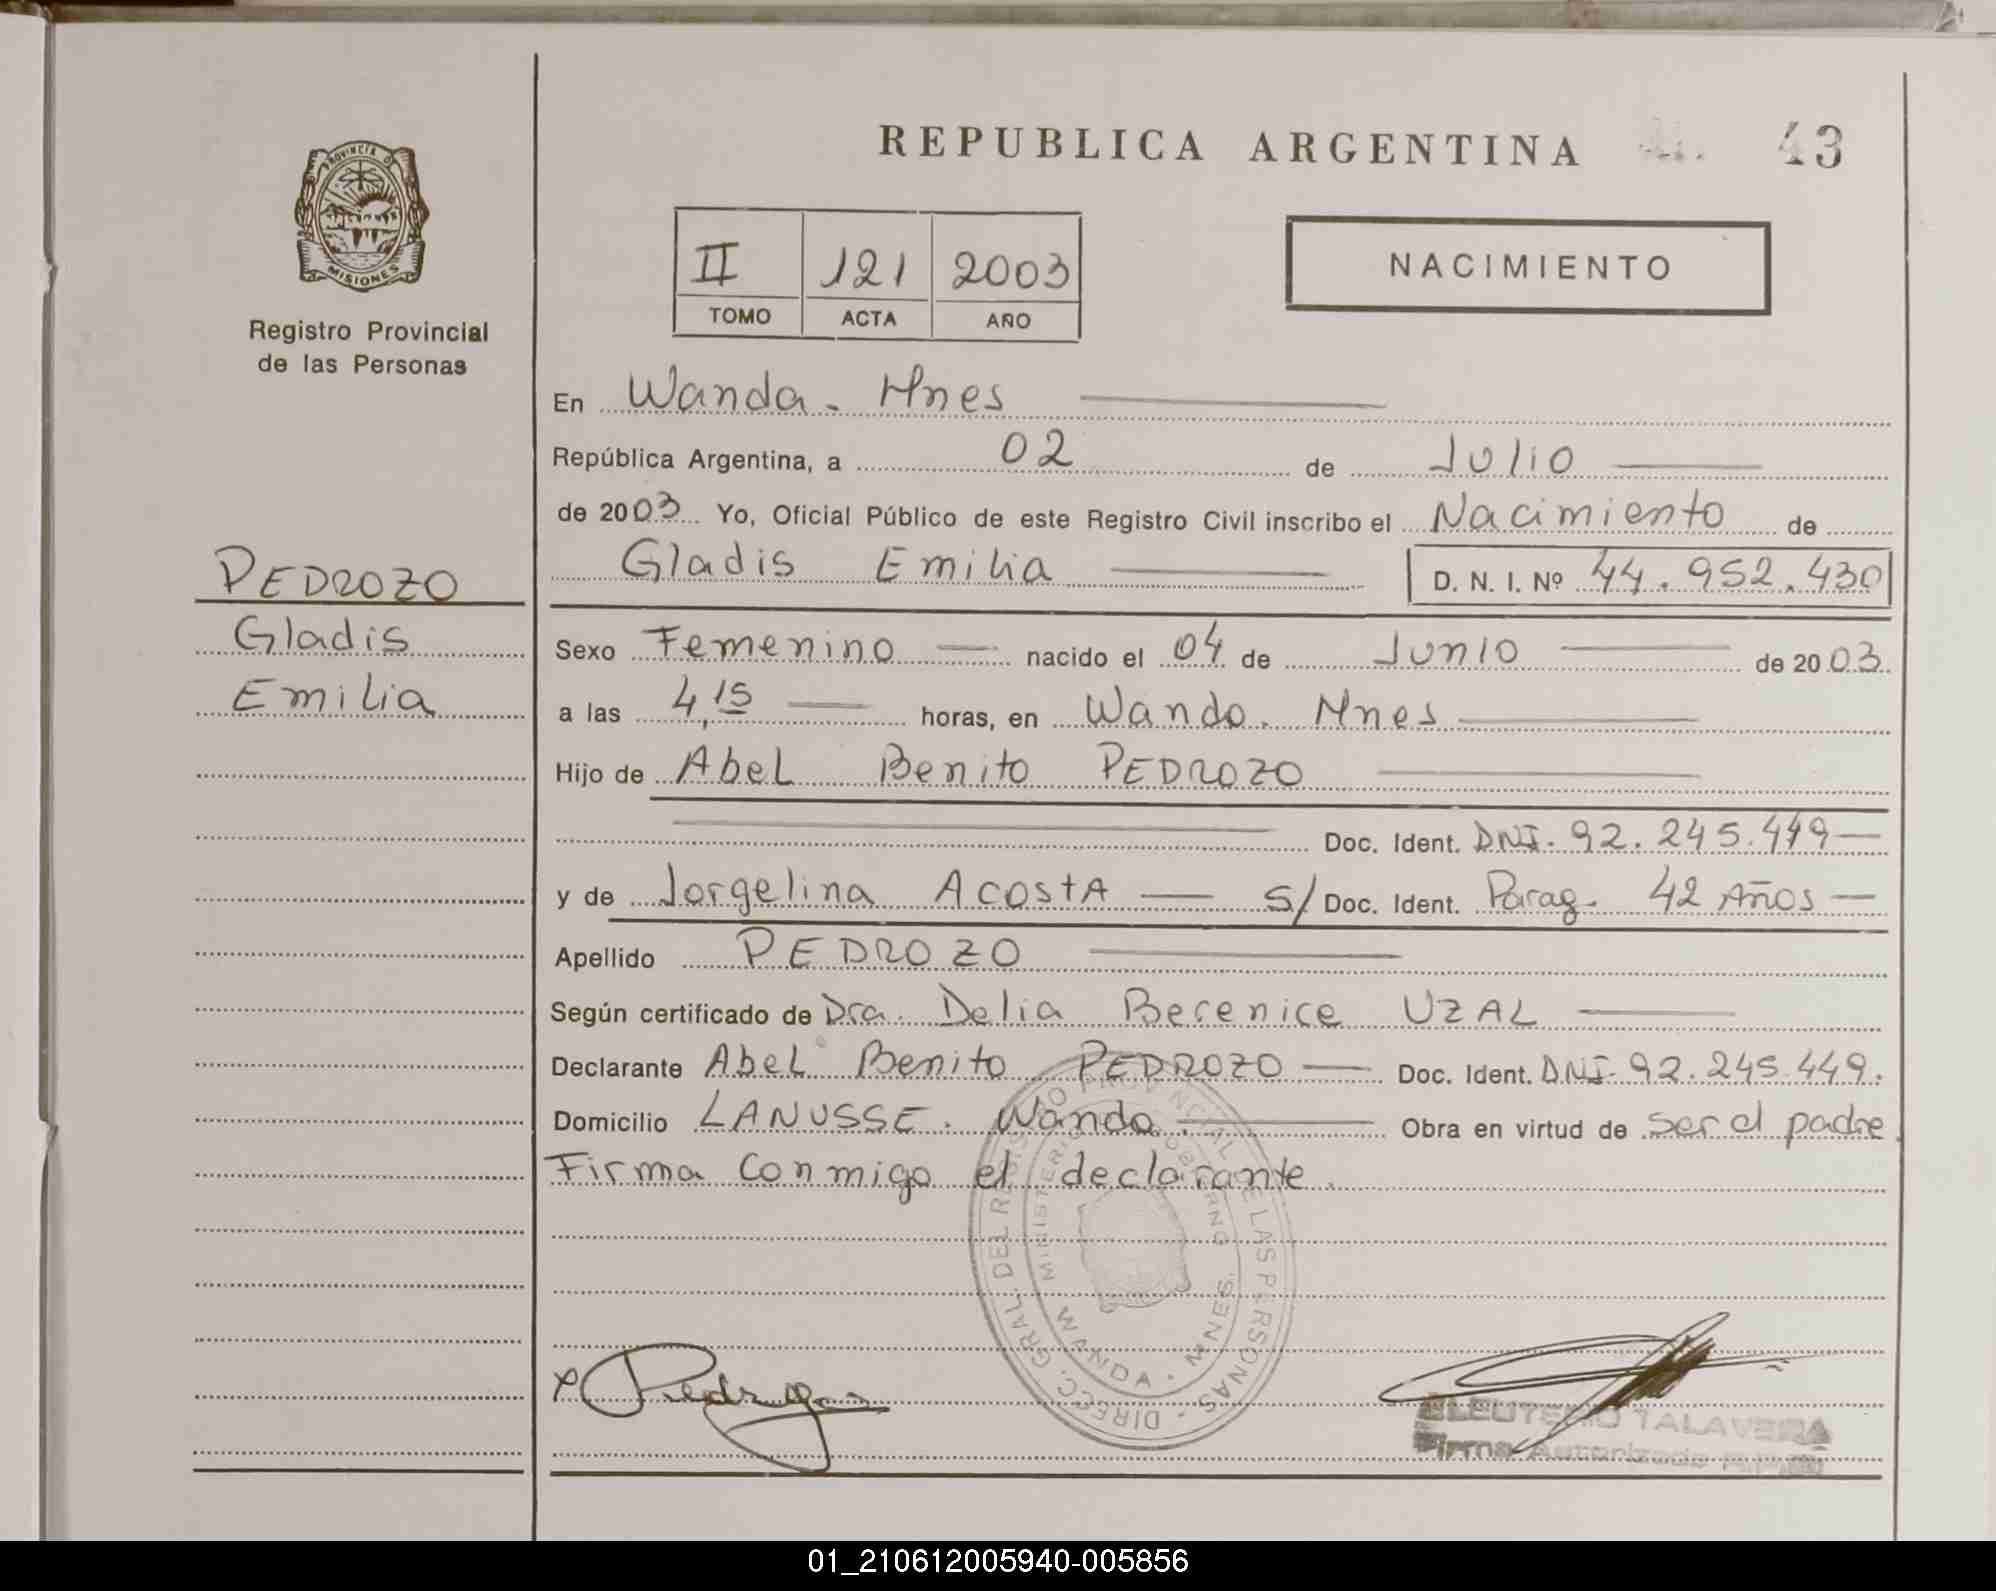 REPUBLICA ARGENTINA 43
PROVINCIA DE
MISIONES
Registro Provincial
de las Personas
II 121 2003
TOMO ACTA AÑO
NACIMIENTO
En Wanda - Mnes
República Argentina, a 02 de Julio
de 2003 Yo, Oficial Público de este Registro Civil inscribo el Nacimiento de
Gladis Emilia D. N. I. Nº 44.952.430
PEDROZO
Gladis
Emilia
Sexo Femenino nacido el 04 de Junio de 2003.
a las 4,15 horas, en Wanda. Mnes
Hijo de Abel Benito PEDROZO
Doc. Ident. DNI. 92.245.449
y de Jorgelina Acosta S/ Doc. Ident. Parag. 42 Años
Apellido PEDROZO
Según certificado de Dra. Delia Berenice UZAL
Declarante Abel Benito PEDROZO Doc. Ident. DNI. 92.245.449.
Domicilio LANUSSE. Wanda. Obra en virtud de ser el padre.
Firma conmigo el declarante.
DIRECC. GRAL. DEL REGISTRO PROVINCIAL DE LAS PERSONAS
MINISTERIO GOBIERNO
WANDA - MNES.
ELEUTERIO TALAVERA
Firma Autorizada
01_210612005940-005856